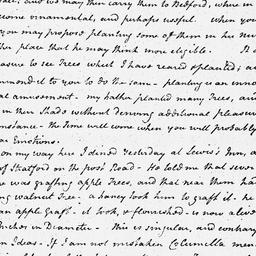 and we may then carry them to Bedford, where in
come ornamental, and perhaps useful. when you
you may propose planting some of them in her ne
ther place that he may think more eligible. It
asure to see Trees which I have reared & planted; a
mmend it to you to do the same - planting is an inno
al amusement. my father planted many Trees, an
in their Shade without deriving additional pleasure
mstance - the time will come when you will probably
ar Emotions.
on my way here I dined Yesterday at Lewis's Inn, a
of Stratford on the post Road - He told me that seve
e was grafting apple Trees, and that near them ha
ng walnut Tree. a fancy took him to graft it. he
an apple graft - it took, & flourished - is now alive
nches in Diameter - this is singular, and contrary
n Ideas - If I am not mistaken Columella men